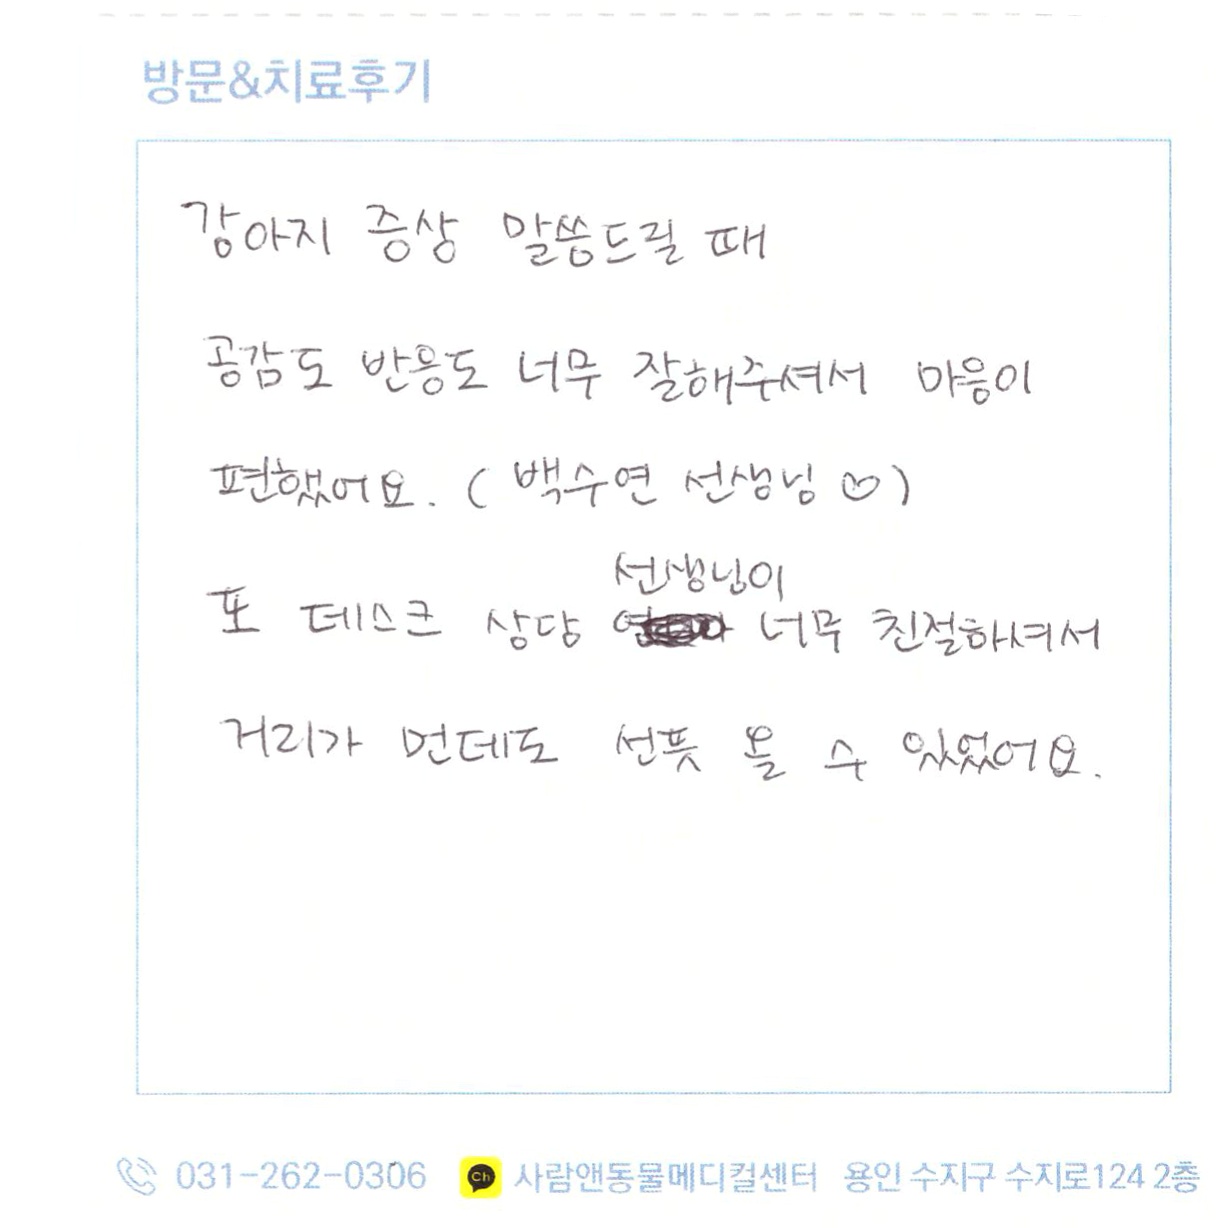 방문&치료후기
강아지 증상 말씀드릴 때
공감도 반응도 너무 잘해주셔서 마음이
편했어요. ( 백수연 선생님 ♡)
선생님이
또 데스크 상담 너무 친절하셔서
거리가 먼데도 선뜻 올 수 있었어요.
031-262-0306 Ch 사람앤동물메디컬센터 용인 수지구 수지로124 2층